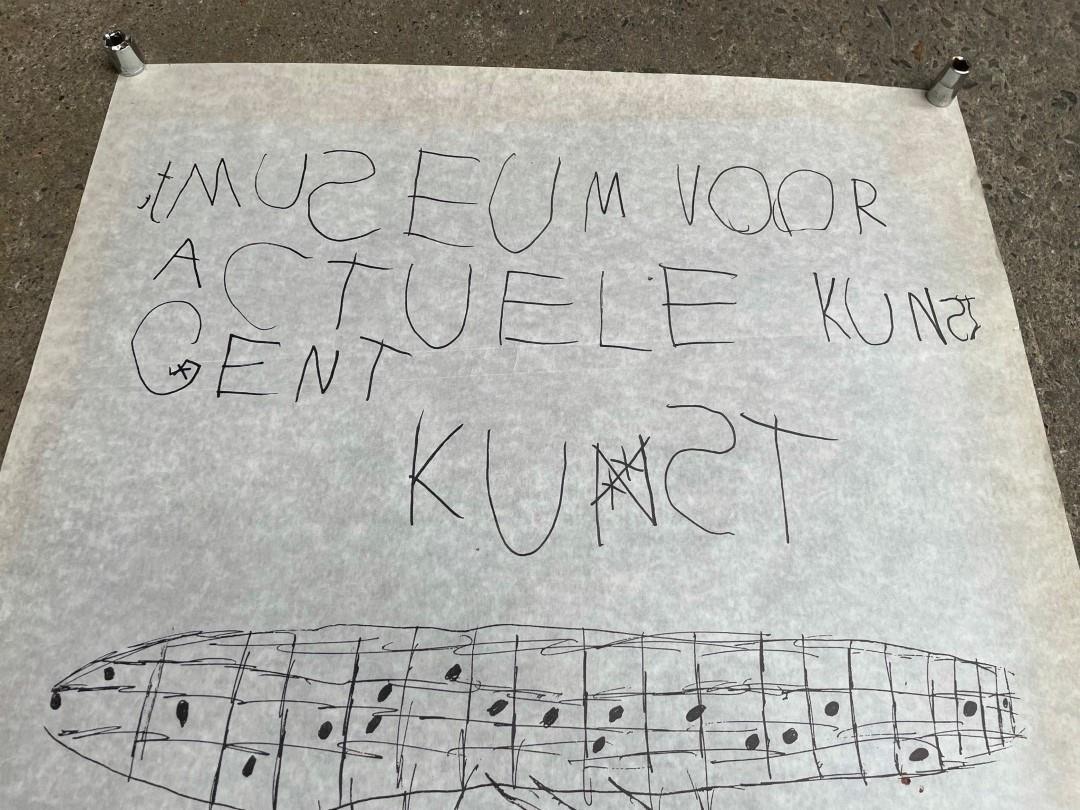 't MUSEUM VOOR
ACTUELE KUNST
GENT
KUNST